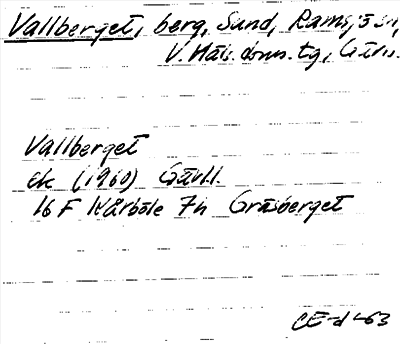 Vallberget, berg, Sund, Ramsjö sn,
V. Häls. doms. tg, Gävls.
Vallberget
ek (1960) Gävl.
16 F Kårböle 7h Gräsberget
CE-d-63